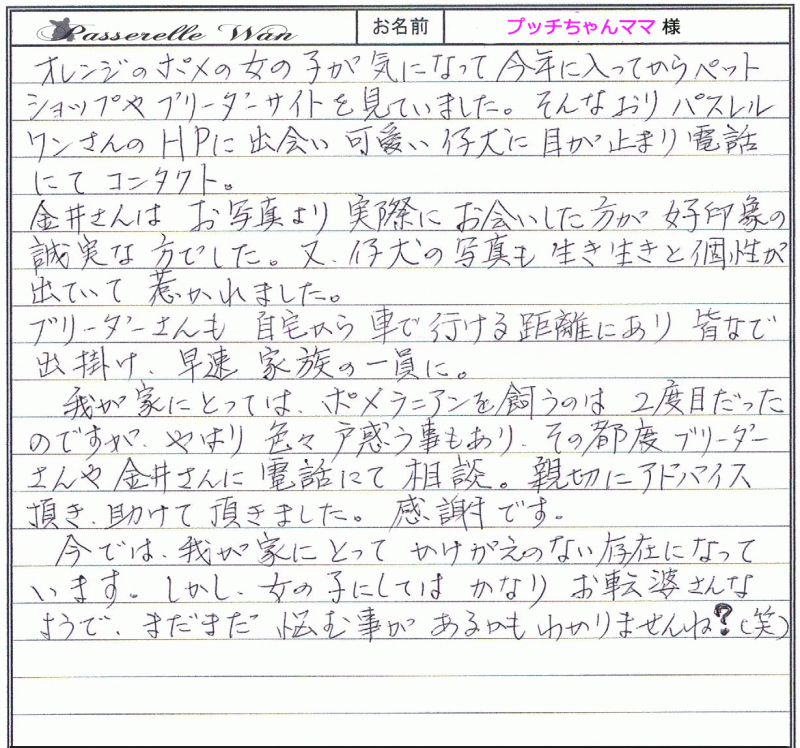 Passerelle Wan お名前 プッチちゃんママ 様
オレンジのポメの女の子が気になって今年に入ってからペット
ショップやブリーダーサイトを見ていました。そんなおりパスレル
ワンさんのHPに出会い可愛い仔犬に目が止まり電話
にてコンタクト。
金井さんは お写真より実際にお会いした方が好印象の
誠実な方でした。又、仔犬の写真も生き生きと個性が
出ていて惹かれました。
ブリーダーさんも自宅から車で行ける距離にあり皆なで
出掛け、早速家族の一員に。
我が家にとっては、ポメラニアンを飼うのは2度目だった
のですが、やはり色々戸惑う事もあり、その都度ブリーダー
さんや金井さんに電話にて相談。親切にアドバイス
頂き、助けて頂きました。感謝です。
今では、我が家にとってかけがえのない存在になって
います。しかし、女の子にしてはかなりお転婆さんな
ようで、まだまだ悩む事があるかもわかりませんね?(笑)